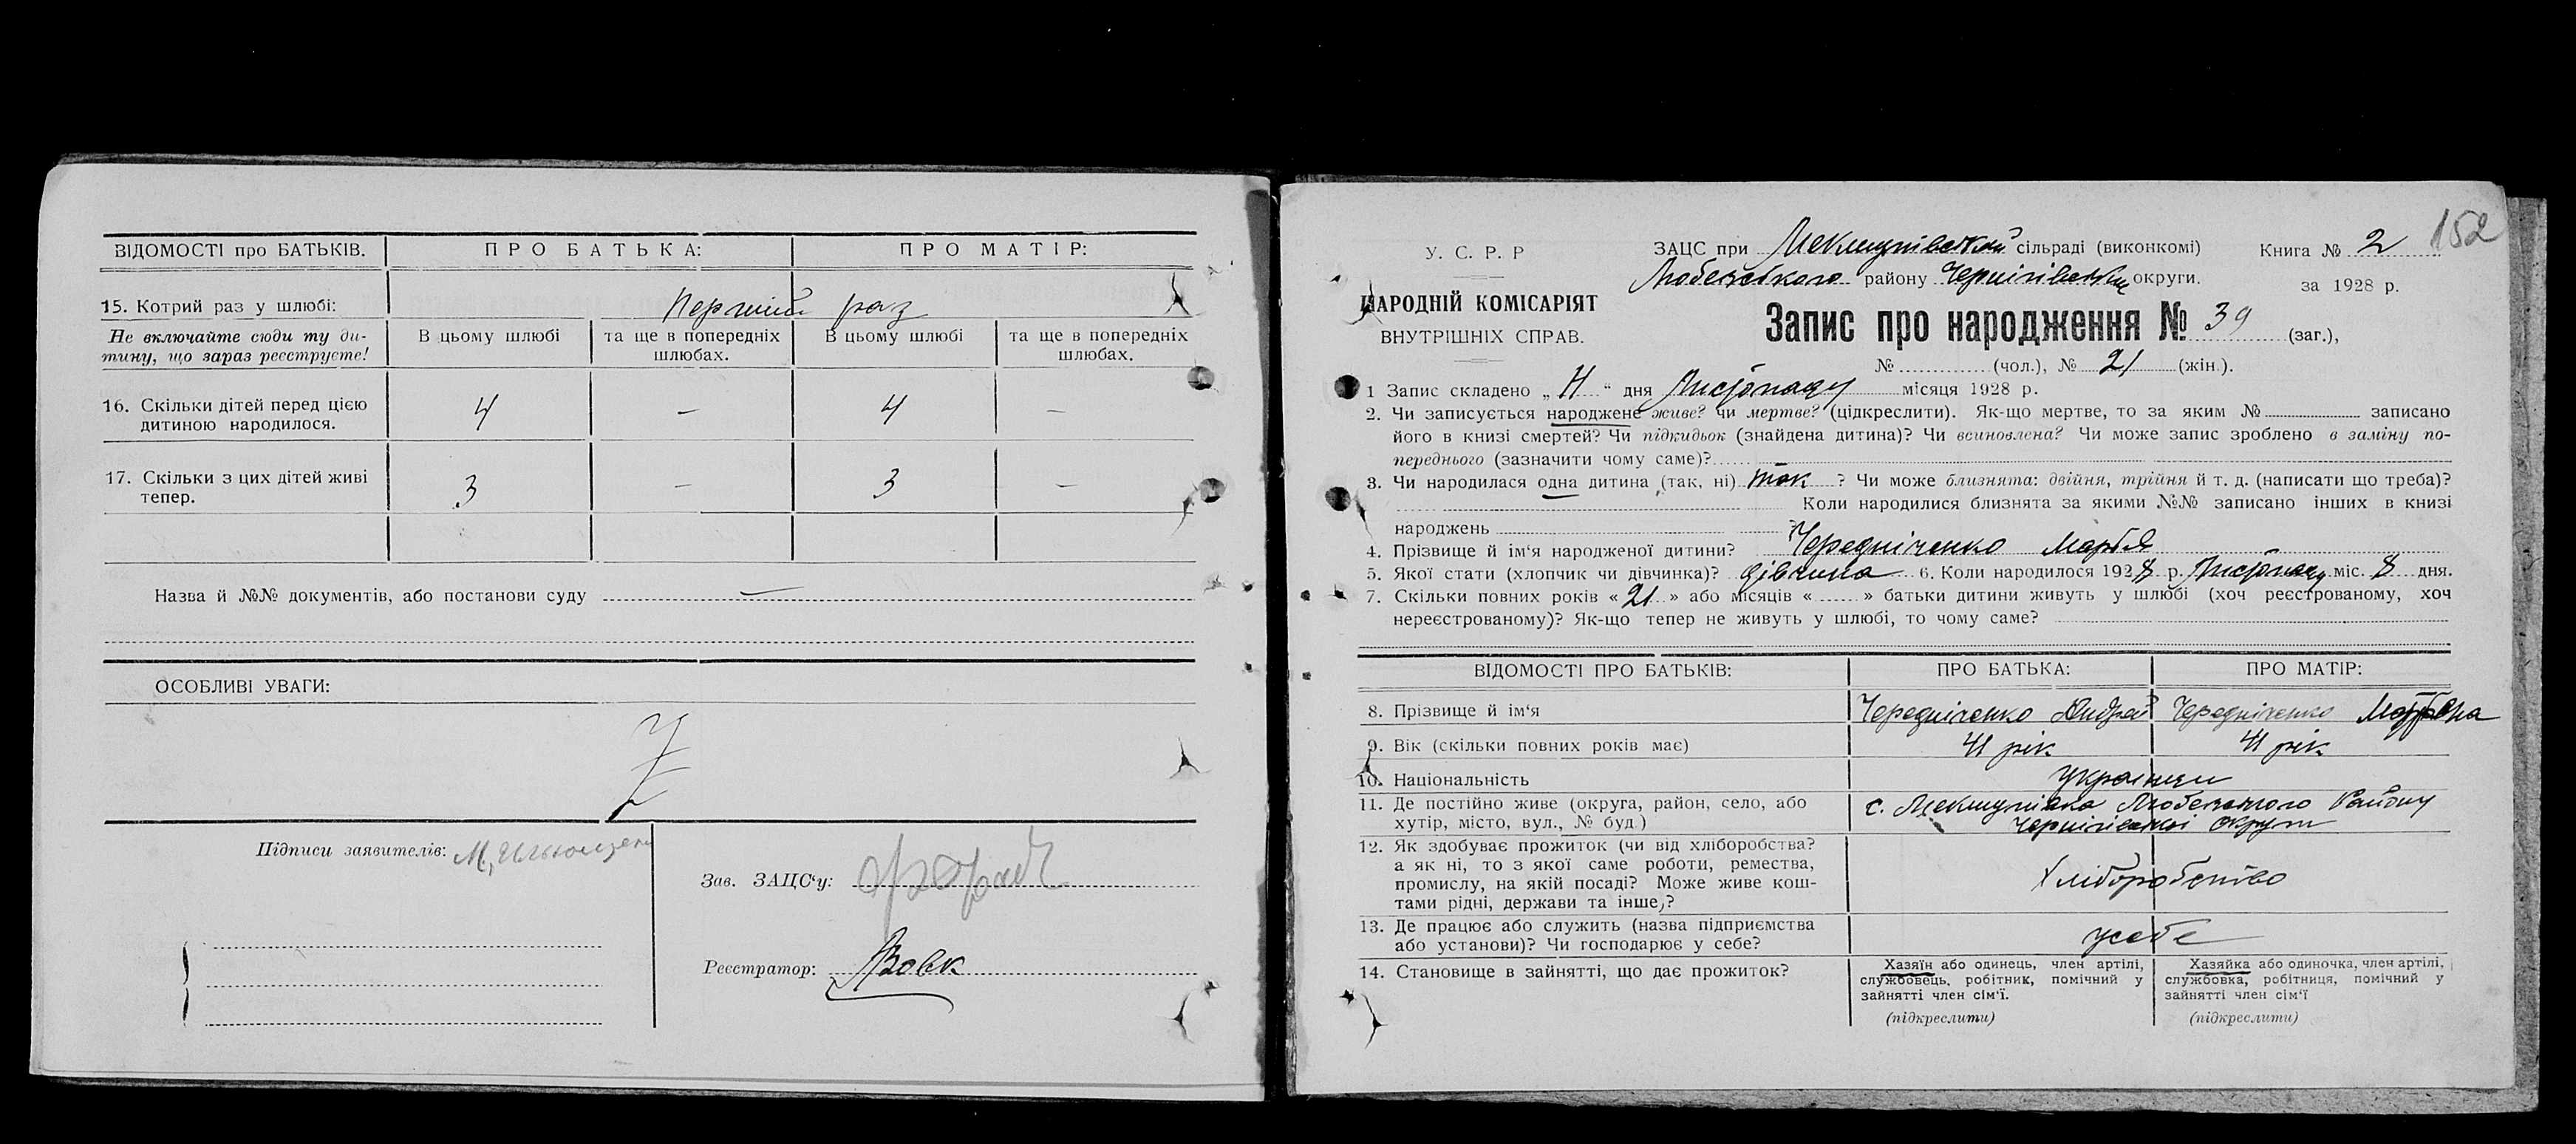 ВІДОМОСТІ про БАТЬКІВ. ПРО БАТЬКА: ПРО МАТІР:
15. Котрий раз у шлюбі: Перший раз
Не включайте сюди ту ди-
тину, що зараз реєструєте!
В цьому шлюбі
та ще в попередніх
шлюбах.
В цьому шлюбі
та ще в попередніх
шлюбах.
16. Скільки дітей перед цією
дитиною народилося.
4 — 4 —
17. Скільки з цих дітей живі
тепер.
3 — 3 —
Назва й №№ документів, або постанови суду —
ОСОБЛИВІ УВАГИ:
Підписи заявителів:
Зав. ЗАЦС‘у:
Реєстратор: Вовк
152
У. С. Р. Р
НАРОДНІЙ КОМІСАРІЯТ
ВНУТРІШНІХ СПРАВ.
ЗАЦС при сільраді (виконкомі)
району Чернігівської округи.
Книга № 2
за 1928 р.
Запис про народження № 39 (заг.),
№ (чол.), № 21 (жін.).
1 Запис складено „ “ дня Листопаду місяця 1928 р.
2. Чи записується народжене живе? чи мертве? (цідкреслити). Як-що мертве, то за яким № записано
його в книзі смертей? Чи підкидьок (знайдена дитина)? Чи всиновлена? Чи може запис зроблено в заміну по-
переднього (зазначити чому саме)?
3. Чи народилася одна дитина (так, ні) так ? Чи може близнята: двійня, трійня й т. д. (написати що треба)?
Коли народилися близнята за якими №№ записано інших в книзі
народжень
4. Прізвище й ім‘я народженої дитини? Чередніченко Марія
5. Якої стати (хлопчик чи дівчинка)? дівчина 6. Коли народилося 1928 р. Листопаду міс. 8 дня.
7. Скільки повних років « 21 » або місяців « » батьки дитини живуть у шлюбі (хоч реєстрованому, хоч
нереєстрованому)? Як-що тепер не живуть у шлюбі, то чому саме?
ВІДОМОСТІ ПРО БАТЬКІВ: ПРО БАТЬКА: ПРО МАТІР:
8. Прізвище й ім‘я Чередніченко Андрей Чередніченко
9. Вік (скільки повних років має) 41 рік 41 рік
10. Національність українци
11. Де постійно живе (округа, район, село, або
хутір, місто, вул., № буд.)
с. Району
Чернігівської округи
12. Як здобуває прожиток (чи від хліборобства?
а як ні, то з якої саме роботи, ремества,
промислу, на якій посаді? Може живе кош-
тами рідні, держави та інше,?
Хліборобство
13. Де працює або служить (назва підприємства
або установи)? Чи господарює у себе?
усебе
14. Становище в зайнятті, що дає прожиток?
Хазяїн або одинець, член артілі,
службовець, робітник, помічний у
зайнятті член сім‘ї.
(підкреслити)
Хазяйка або одиночка, член артілі,
службовка, робітниця, помічний у
зайнятті член сім‘ї
(підкреслити)